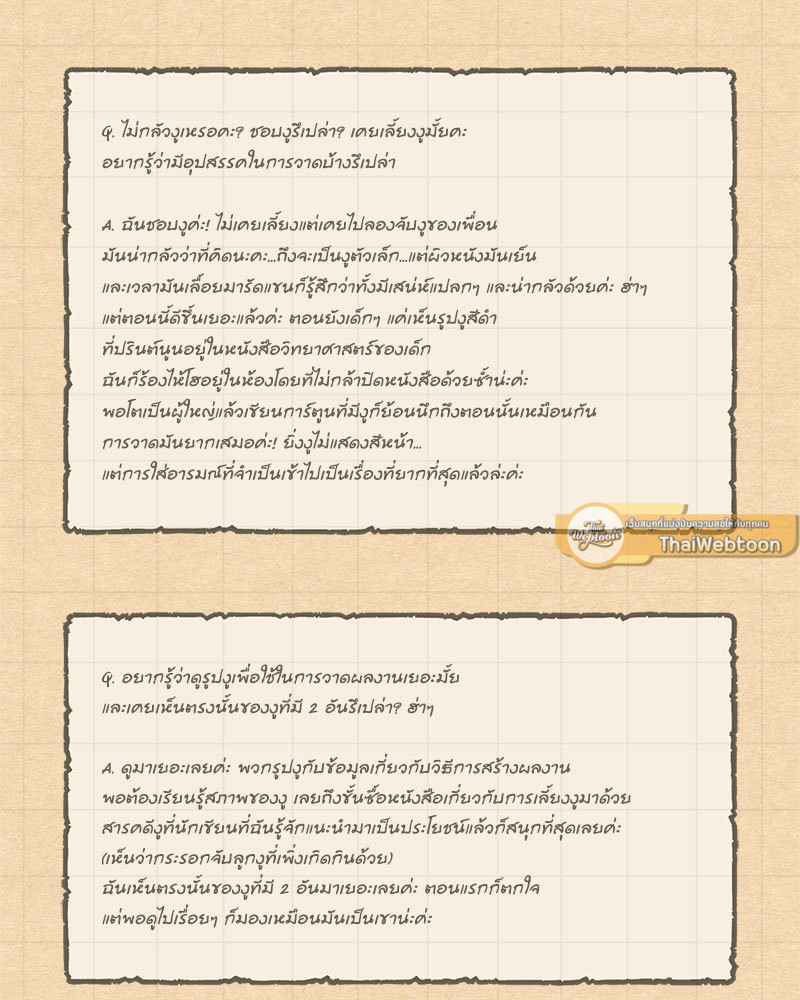 Q. ไม่กลัวงูเหรอคะ? ชอบงูรึเปล่า? เคยเลี้ยงงูมั้ยคะ
อยากรู้ว่ามีอุปสรรคในการวาดบ้างรึเปล่า
A. ฉันชอบงูค่ะ! ไม่เคยเลี้ยงแต่เคยไปลองจับงูของเพื่อน
มันน่ากลัวว่าที่คิดนะคะ...ถึงจะเป็นงูตัวเล็ก...แต่ผิวหนังมันเย็น
และเวลามันเลื้อยมารัดแขนก็รู้สึกว่าทั้งมีเสน่ห์แปลกๆ และน่ากลัวด้วยค่ะ ฮ่าๆ
แต่ตอนนี้ดีขึ้นเยอะแล้วค่ะ ตอนยังเด็กๆ แค่เห็นรูปงูสีดำ
ที่ปรินต์นูนอยู่ในหนังสือวิทยาศาสตร์ของเด็ก
ฉันก็ร้องไห้โฮอยู่ในห้องโดยที่ไม่กล้าปิดหนังสือด้วยซ้ำน่ะค่ะ
พอโตเป็นผู้ใหญ่แล้วเขียนการ์ตูนที่มีงูก็ย้อนนึกถึงตอนนั้นเหมือนกัน
การวาดมันยากเสมอค่ะ! ยิ่งงูไม่แสดงสีหน้า...
แต่การใส่อารมณ์ที่จำเป็นเข้าไปเป็นเรื่องที่ยากที่สุดแล้วล่ะค่ะ
Thai Webtoon
เว็บสนุกที่แบ่งปันความสุขให้กับทุกคน
ThaiWebtoon
Q. อยากรู้ว่าดูรูปงูเพื่อใช้ในการวาดผลงานเยอะมั้ย
และเคยเห็นตรงนั้นของงูที่มี 2 อันรึเปล่า? ฮ่าๆ
A. ดูมาเยอะเลยค่ะ พวกรูปงูกับข้อมูลเกี่ยวกับวิธีการสร้างผลงาน
พอต้องเรียนรู้สภาพของงู เลยถึงขั้นซื้อหนังสือเกี่ยวกับการเลี้ยงงูมาด้วย
สารคดีงูที่นักเขียนที่ฉันรู้จักแนะนำมาเป็นประโยชน์แล้วก็สนุกที่สุดเลยค่ะ
(เห็นว่ากระรอกจับลูกงูที่เพิ่งเกิดกินด้วย)
ฉันเห็นตรงนั้นของงูที่มี 2 อันมาเยอะเลยค่ะ ตอนแรกก็ตกใจ
แต่พอดูไปเรื่อยๆ ก็มองเหมือนมันเป็นเขาน่ะค่ะ